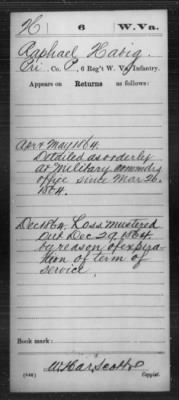 H 6 W.Va.
Raphael Habig.
Pri, Co. P, 6 Reg't W. Va. Infantry.
Appears on Returns as follows:
Apr & May 1864.
Detailed as orderly
at Military commdrs
office since Mar 26.
1864.
Dec 1864, Loss mustered
out Dec 29 1864.
by reason of expira
tion of term of
service
Book mark:
W. Harscott
(546) Copyist.